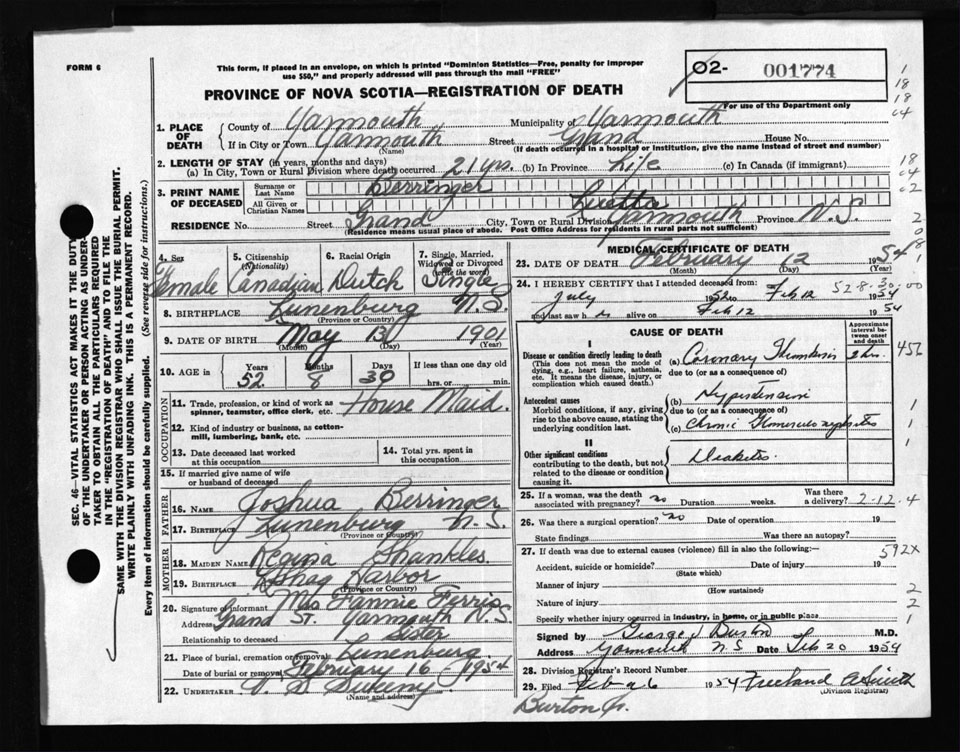 FORM 6
This form, if placed in an envelope, on which is printed "Dominion Statistics—Free, penalty for improper
use $50," and properly addressed will pass through the mail "FREE"
O2- 001774
For use of the Department only
PROVINCE OF NOVA SCOTIA—REGISTRATION OF DEATH
1. PLACE OF DEATH
County of Yarmouth Municipality of Yarmouth
If in City or Town Yarmouth (Name) Street Grand House No.
(If death occurred in a hospital or institution, give the name instead of street and number)
2. LENGTH OF STAY (in years, months and days)
(a) In City, Town or Rural Division where death occurred 21 yrs. (b) In Province Life (c) In Canada (if immigrant)
3. PRINT NAME OF DECEASED
Surname or Last Name Berringer
All Given or Christian Names Luetta
RESIDENCE No. Street Grand City, Town or Rural Division Yarmouth Province N.S.
(Residence means usual place of abode. Post Office Address for rural parts not sufficient)
4. Sex Female
5. Citizenship (Nationality) Canadian
6. Racial Origin Dutch
7. Single, Married, Widowed or Divorced (write the word) Single
8. BIRTHPLACE Lunenburg N.S. (Province or Country)
9. DATE OF BIRTH May 13 1901
(Month) (Day) (Year)
10. AGE in Years 52 Months 8 Days 30 If less than one day old hrs. or min.
OCCUPATION
11. Trade, profession, or kind of work as spinner, teamster, office clerk, etc. House Maid.
12. Kind of industry or business, as cotton-mill, lumbering, bank, etc.
13. Date deceased last worked at this occupation
14. Total yrs. spent in this occupation
15. If married give name of wife or husband of deceased
FATHER
16. Name Joshua Berringer
17. Birthplace Lunenburg N.S. (Province or Country)
MOTHER
18. MAIDEN NAME Regina Shankles
19. BIRTHPLACE Harbor (Province or Country)
20. Signature of informant Mrs Fannie Ferris
Address Grand St. Yarmouth N.S.
Relationship to deceased Sister
21. Place of burial, cremation or removal Lunenburg
Date of burial or removal February 16 1954
22. UNDERTAKER V. S. Sweeny
(Name and address)
MEDICAL CERTIFICATE OF DEATH
23. DATE OF DEATH February 12 1954
(Month) (Day) (Year)
24. I HEREBY CERTIFY that I attended deceased from:
July 1952 to Feb 12 1954
and last saw h alive on Feb 12 1954
CAUSE OF DEATH
Approximate interval between onset and death
I
Disease or condition directly leading to death
(This does not mean the mode of dying, e.g., heart failure, asthenia, etc. It means the disease, injury, or complication which caused death.
(a) Coronary Thrombosis 2 hrs.
due to (or as a consequence of)
Antecedent causes
Morbid conditions, if any, giving rise to the above cause, stating the underlying condition last.
(b) Hypertension
due to (or as a consequence of)
(c) Chronic Glomerulonephritis
II
Other significant conditions
contributing to the death, but not related to the disease or condition causing it.
Diabetes.
25. If a woman, was the death associated with pregnancy? no Duration weeks. Was there a delivery? 2-12-4
26. Was there a surgical operation? no Date of operation 19
State findings Was there an autopsy?
27. If death was due to external causes (violence) fill in also the following:— 592X
Accident, suicide or homicide? (State which) Date of injury 19
Manner of injury (How sustained)
Nature of injury
Specify whether injury occurred in industry, in home, or in public place
Signed by George J Burton M.D.
Address Yarmouth N S Date Feb 20 1954
28. Division Registrar's Record Number
29. Filed Feb 26 1954 Freeland A Smith
(Division Registrar)
Burton Jr.
SEC. 46—VITAL STATISTICS ACT MAKES IT THE DUTY
OF THE UNDERTAKER OR PERSON ACTING AS UNDER-
TAKER TO OBTAIN ALL THE PARTICULARS REQUIRED
IN THE "REGISTRATION OF DEATH" AND TO FILE THE
SAME WITH THE DIVISION REGISTRAR WHO SHALL ISSUE THE BURIAL PERMIT.
WRITE PLAINLY WITH UNFADING INK. THIS IS A PERMANENT RECORD.
Every item of information should be carefully supplied. (See reverse side for instructions.)
1
18
18
04
18
04
02
2
0
8
1
456
1
1
1
2
2
1